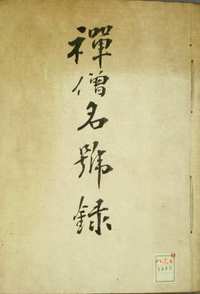 禪僧名號録